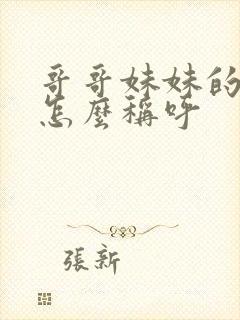 哥哥妹妹的
怎麼稱呼
張新